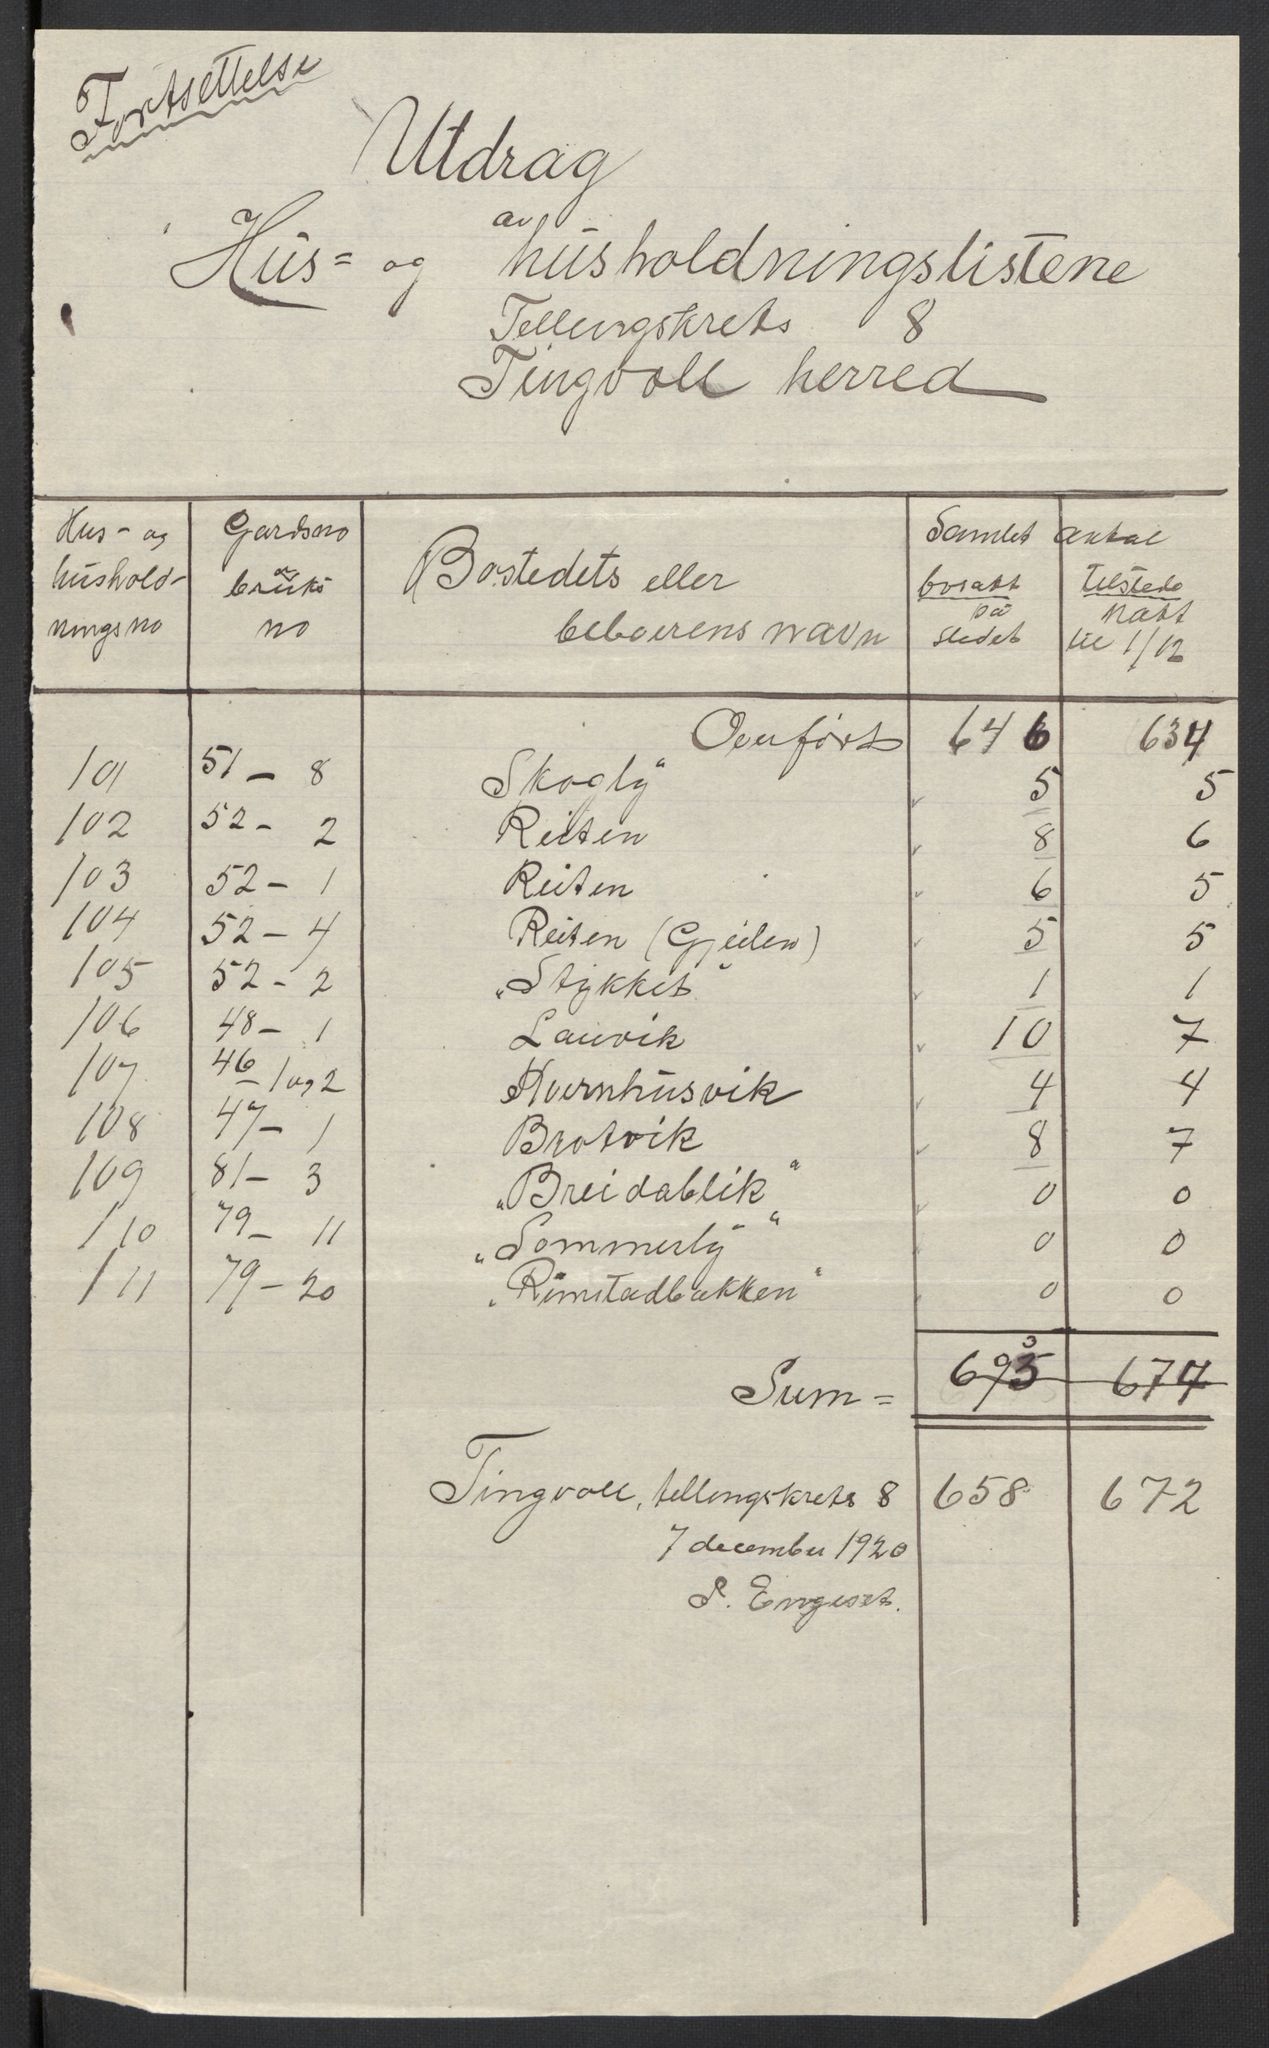 Fortsettelse
Utdrag
av
Hus= og husholdningslistene
Tellingskrets 8
Tingvoll herred
Hus- og hushold- ningsno | Gardsno og bruks no | Bostedets eller beboerens navn | Samlet antal bosatt på stedet | tilstede natt til 1/12
Overført 646 634
101 51 - 8 Skogly" 5 5
102 52 - 2 Reiten 8 6
103 52 - 1 Reiten 6 5
104 52 - 4 Reiten (Gjeilen) 5 5
105 52 - 2 "Stykket" 1 1
106 48 - 1 Lauvik 10 7
107 46 - 1 og 2 Kvernhusvik 4 4
108 47 - 1 Brotvik 8 7
109 81 - 3 "Breidablik" 0 0
110 79 - 11 "Sommerly" 0 0
111 79 - 20 "Rimstadbakken" 0 0
Sum = 693 674
Tingvoll, tellingskrets 8 658 672
7 december 1920
P. Engeset.